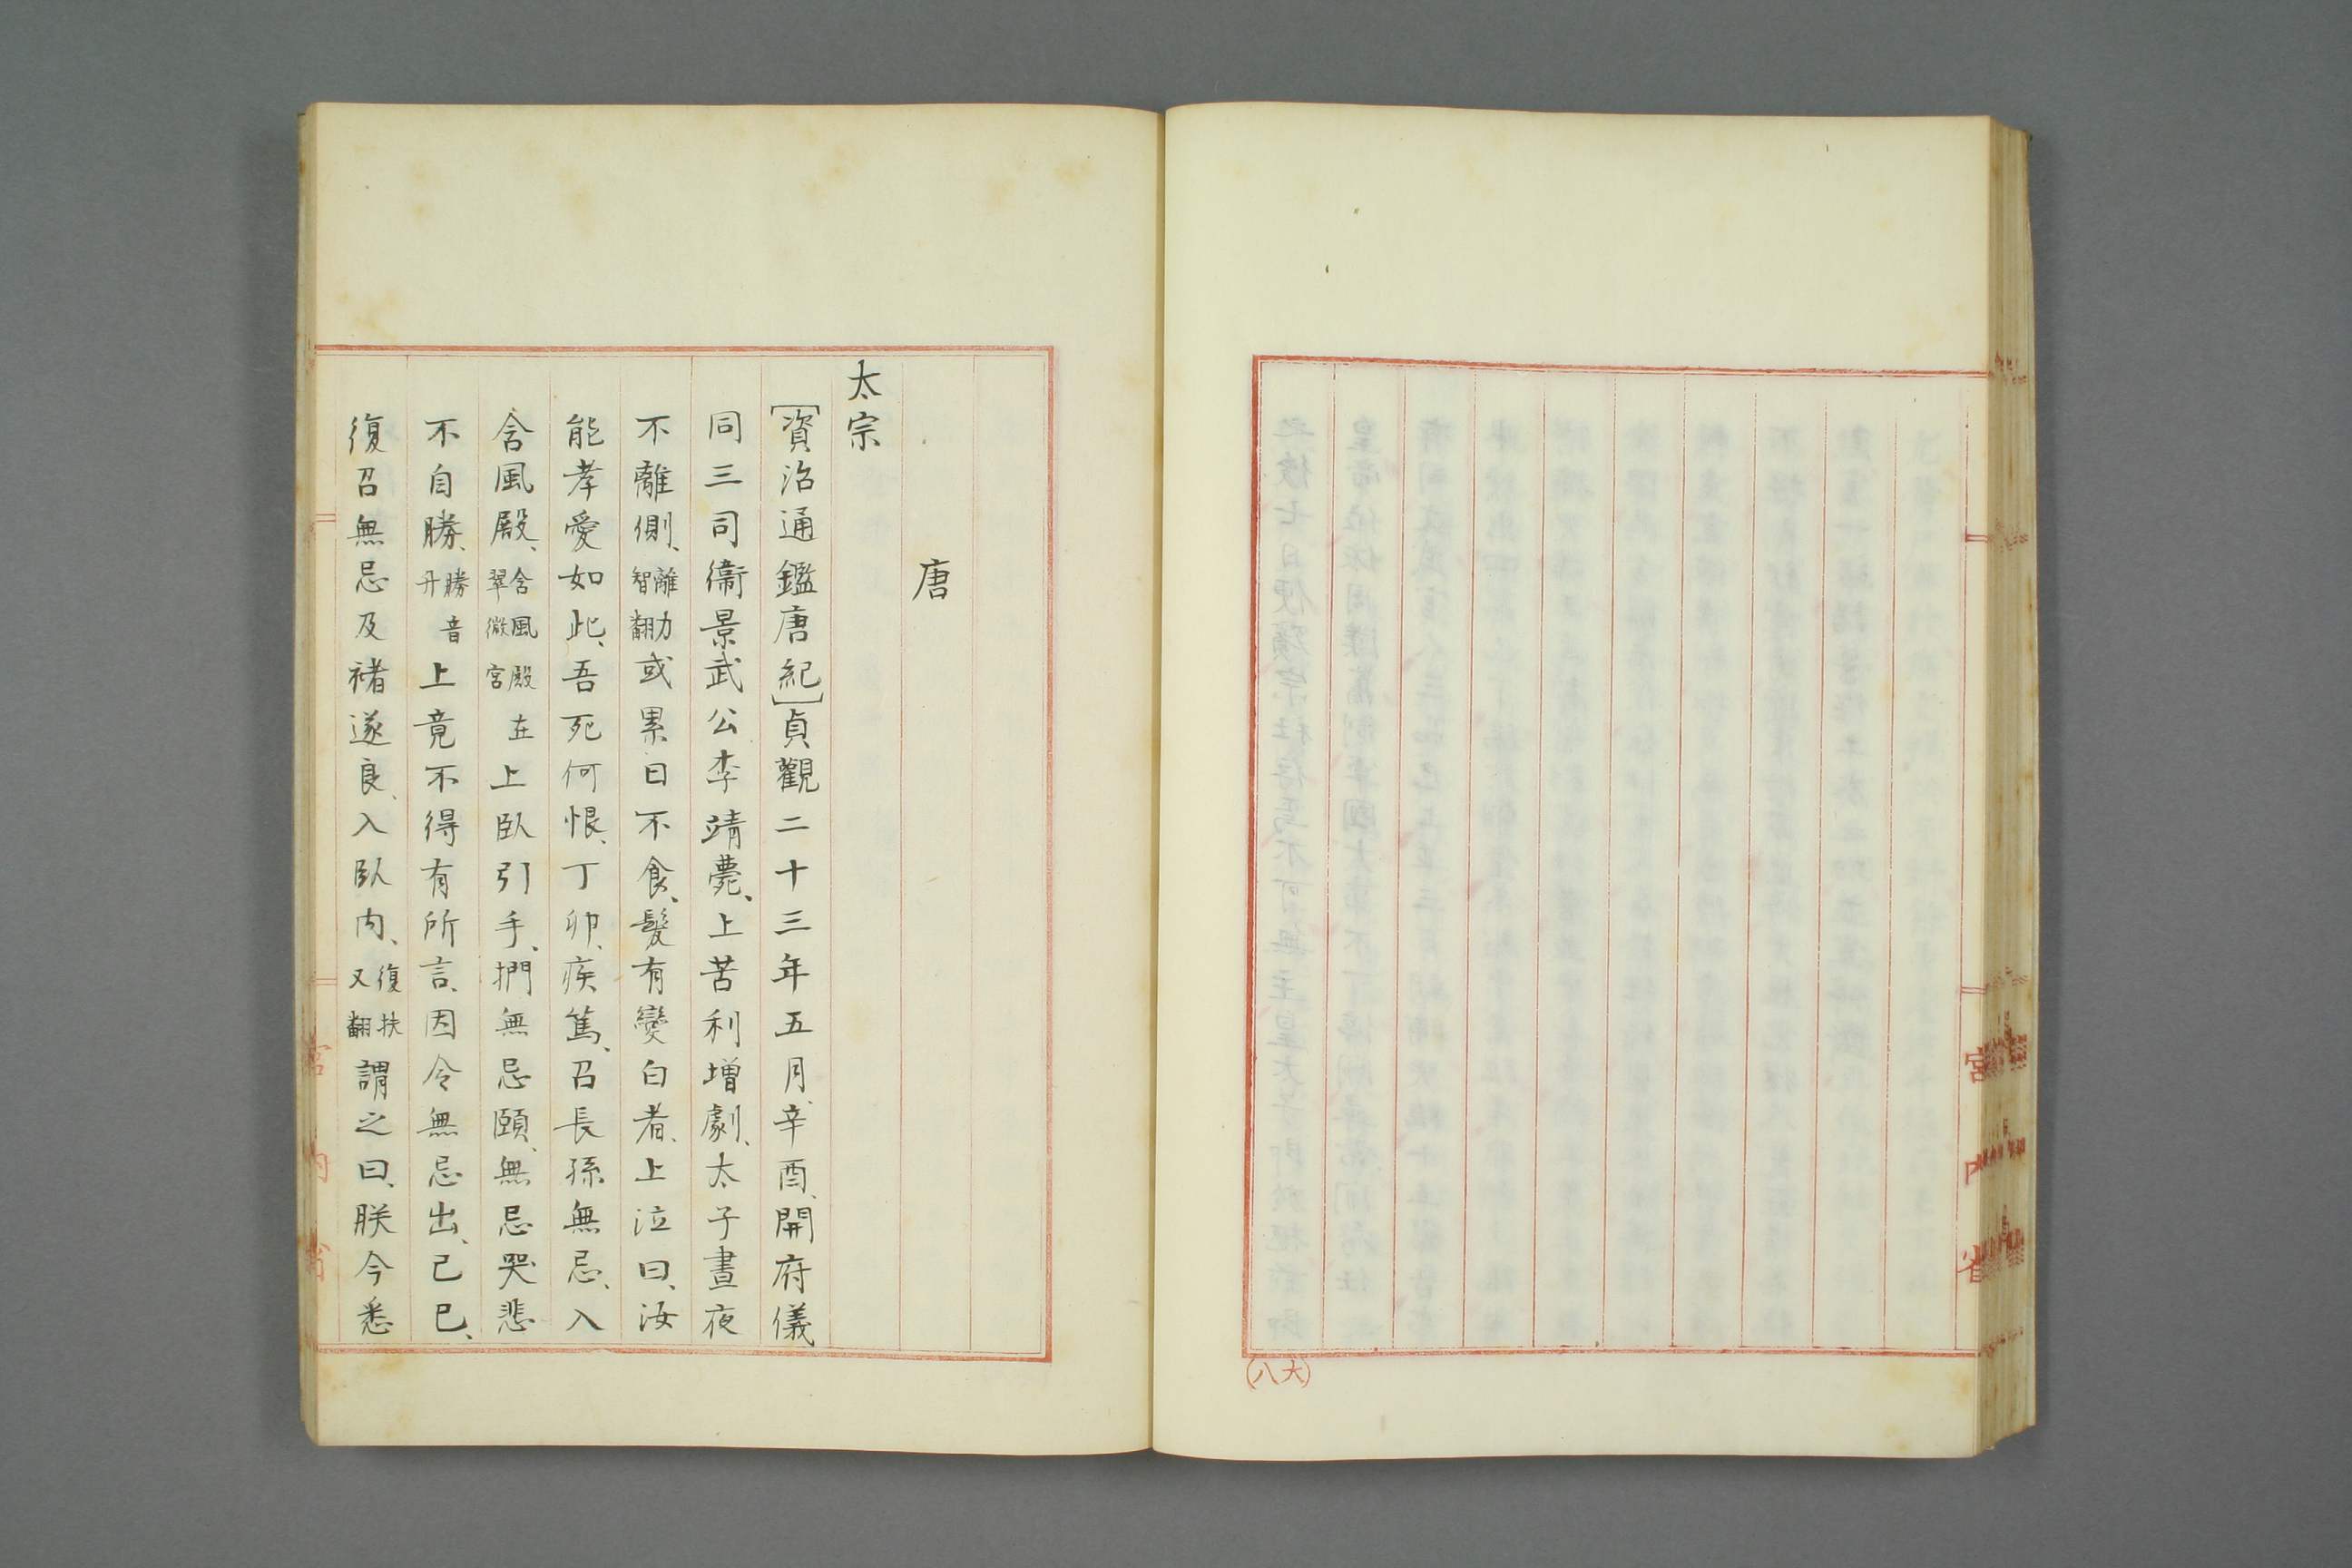 宮内省
(大八)
唐
太宗
[資治通鑑唐紀]貞觀二十三年五月、辛酉、開府儀
同三司衞景武公李靖薨、上苦利增劇、太子晝夜
不離側、離力智翻或累日不食、髮有變白者、上泣曰、汝
能孝愛如此、吾死何恨、丁卯、疾篤、召長孫無忌、入
含風殿、含風殿在翠微宮上臥引手、捫無忌頤、無忌哭悲
不自勝、勝音升上竟不得有所言、因令無忌出、己巳、
復召無忌及褚遂良、入臥内、復扶又翻謂之曰、朕今悉
宮内省